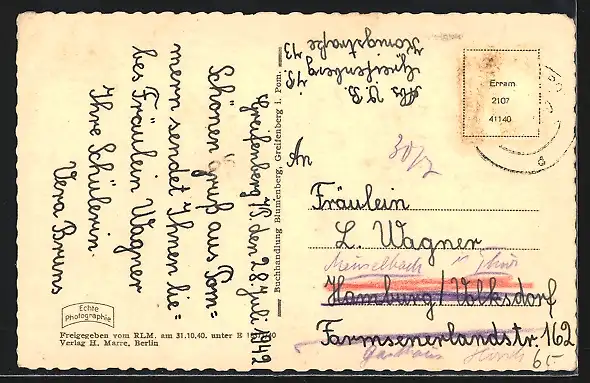 Greifenberg i/P den 28 Juli 1942
Schönen Gruß aus Pom=
mern sendet Ihnen lie=
bes Fräulein Wagner
Ihre Schülerin.
Vera Bruns
Echte
Photographie
Freigegeben vom RLM. am 31.10.40. unter E
Verlag H. Marre, Berlin
Buchhandlung Blumenberg, Greifenberg i. Pom.
Abs. V. B.
Greifenberg i/P
Königstraße
13
Erram
2107
41140
An
Fräulein
L. Wagner
Meuselbach
Hamburg/Volksdorf
Farmsenerlandstr. 162
Gasthaus
6.-